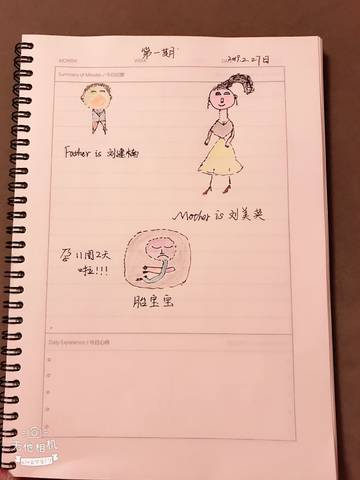 第一期
2019.2.27日
MONTH:
WEEK:
Summary of Minutes / 今日纪要
Father is 刘建楠
Mother is 刘美英
孕11周2天
啦!!!
胎宝宝
Daily Experience / 今日心得
无他相机